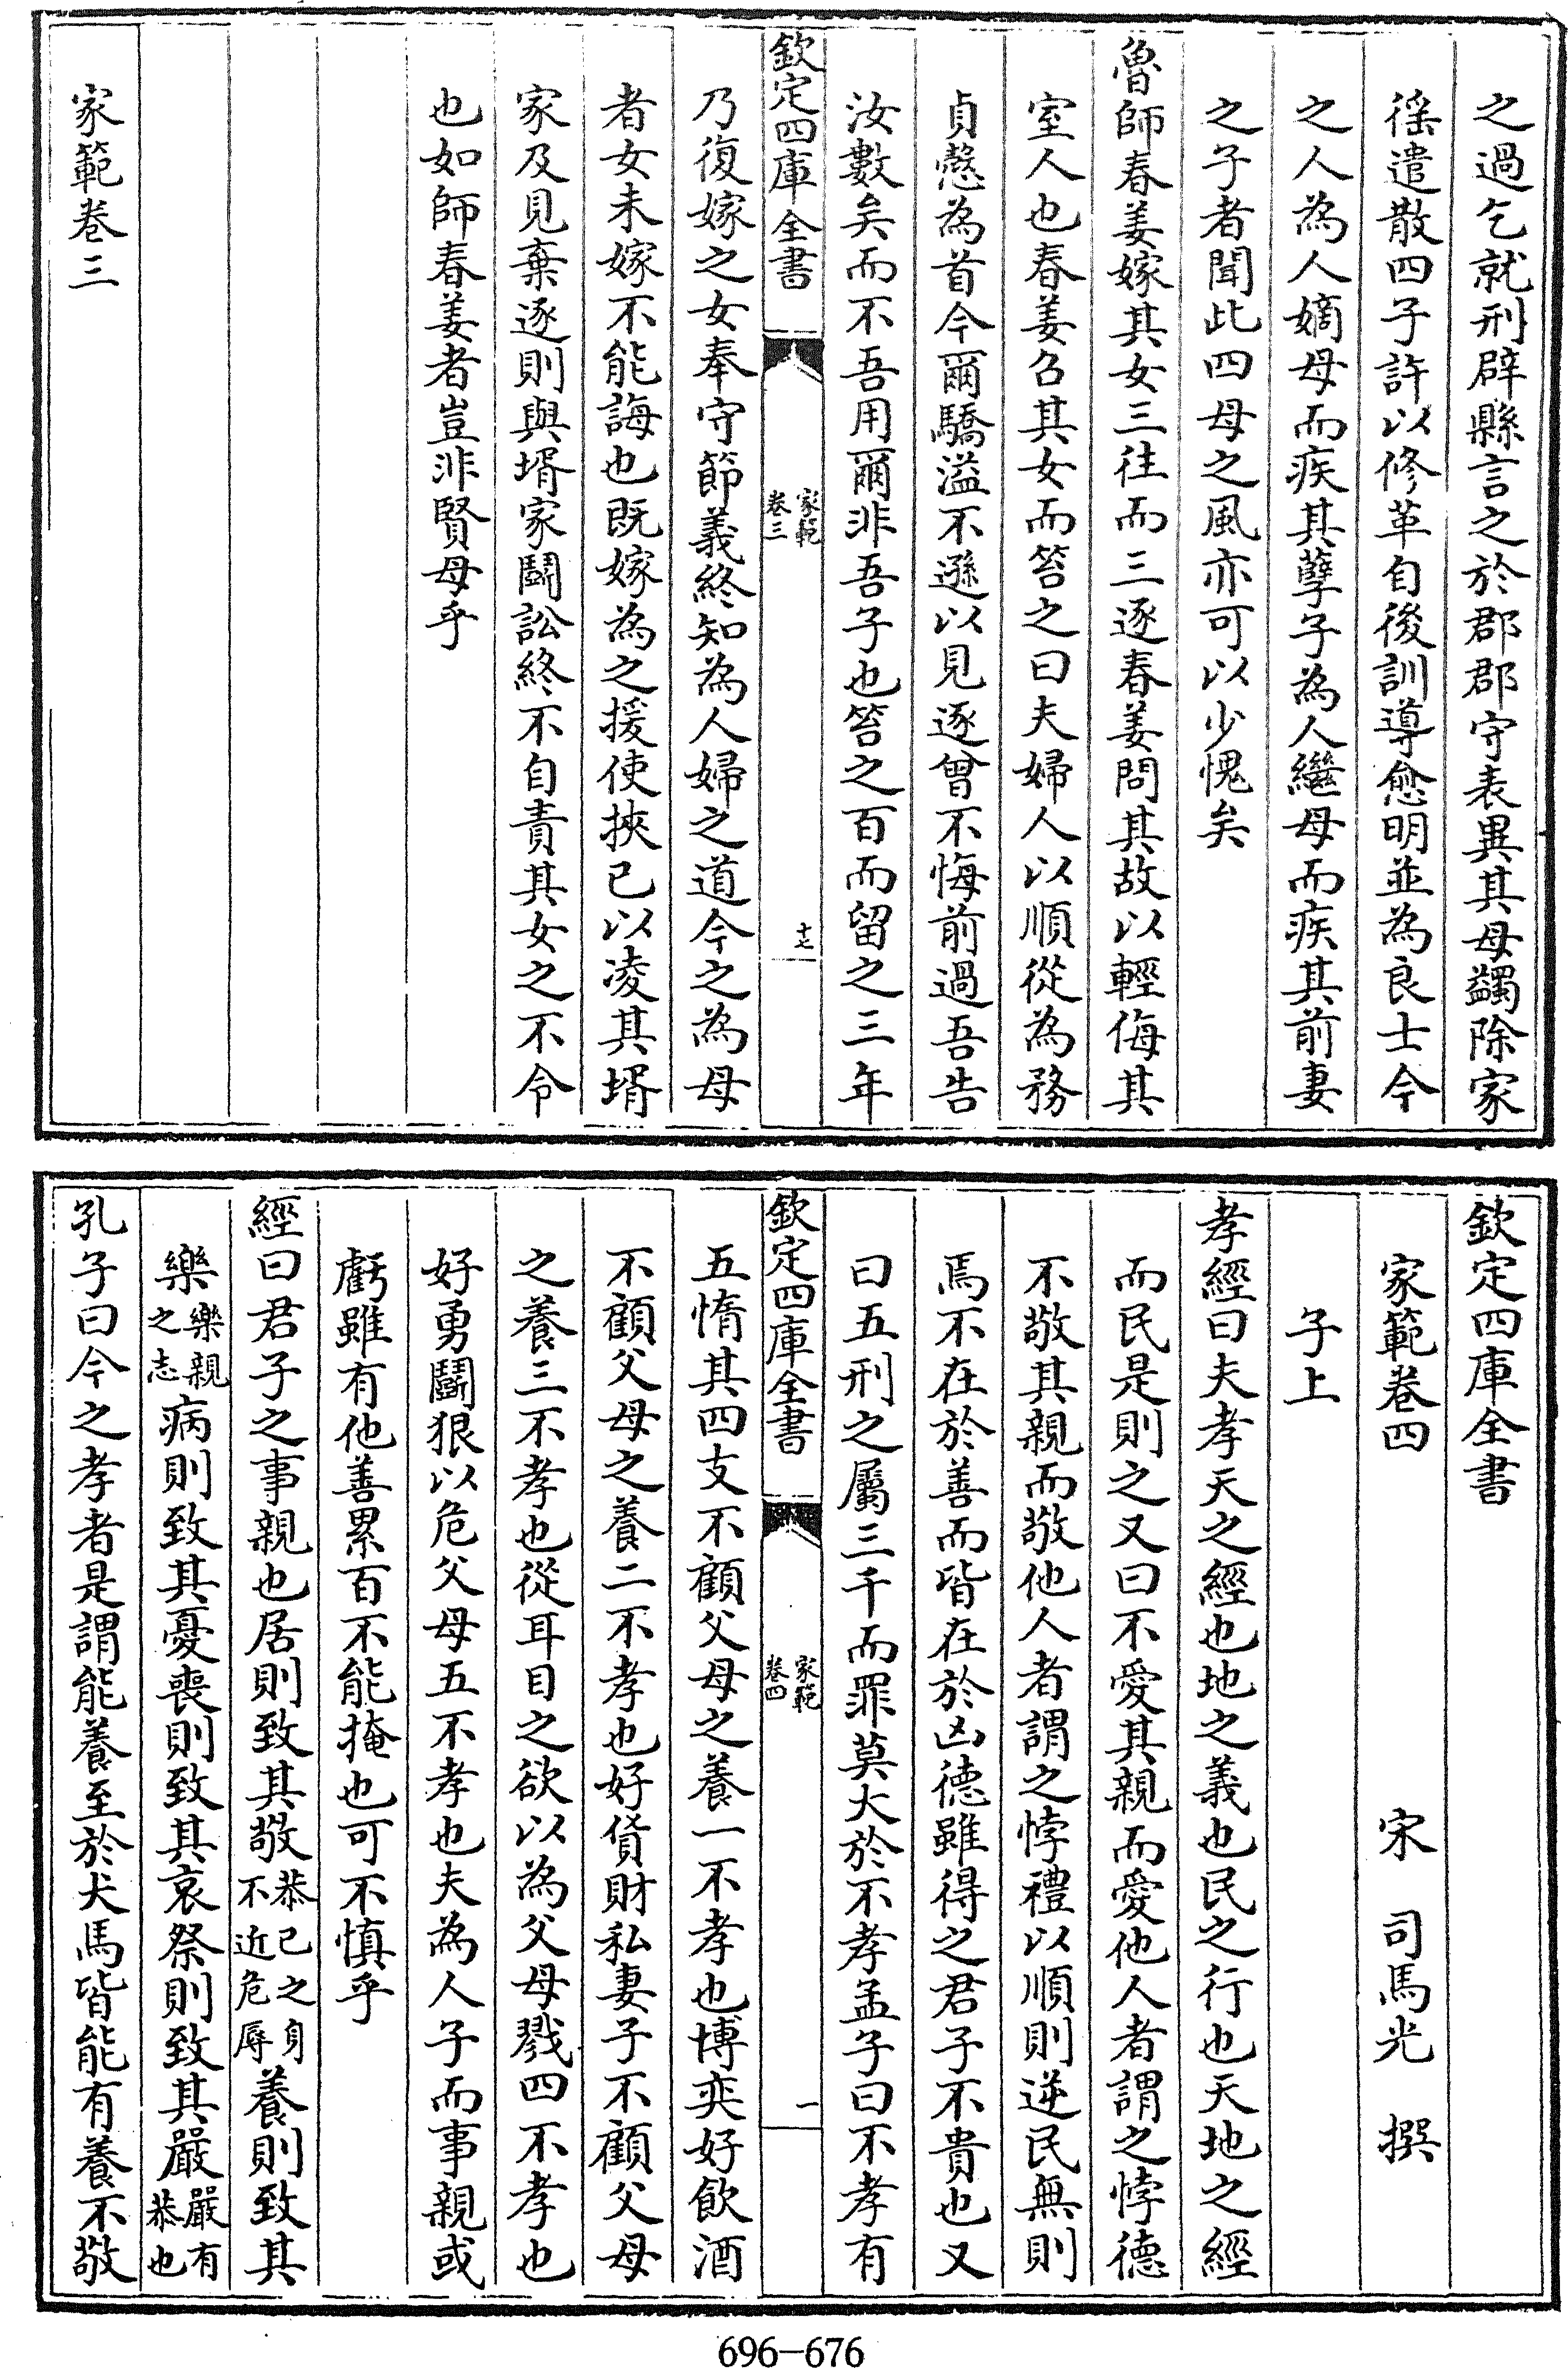 之過乞就刑辟縣言之於郡郡守表異其母蠲除家
徭遣散四子許以修革自後訓導愈明並為良士今
之人為人嫡母而疾其孽子為人繼母而疾其前妻
之子者聞此四母之風亦可以少愧矣
魯師春姜嫁其女三往而三逐春姜問其故以輕侮其
室人也春姜召其女而笞之曰夫婦人以順從為務
貞慤為首今爾驕溢不遜以見逐曾不悔前過吾告
汝數矣而不吾用爾非吾子也笞之百而留之三年
欽定四庫全書
家範
卷三
十七
乃復嫁之女奉守節義終知為人婦之道今之為母
者女未嫁不能誨也既嫁為之援使挾已以凌其壻
家及見棄逐則與壻家鬭訟終不自責其女之不令
也如師春姜者豈非賢母乎
家範卷三
欽定四庫全書
家範卷四
宋 司馬光 撰
子上
孝經曰夫孝天之經也地之義也民之行也天地之經
而民是則之又曰不愛其親而愛他人者謂之悖德
不敬其親而敬他人者謂之悖禮以順則逆民無則
焉不在於善而皆在於凶德雖得之君子不貴也又
曰五刑之屬三千而罪莫大於不孝孟子曰不孝有
欽定四庫全書
家範
卷四
一
五惰其四支不顧父母之養一不孝也博奕好飲酒
不顧父母之養二不孝也好貨財私妻子不顧父母
之養三不孝也從耳目之欲以為父母戮四不孝也
好勇鬭狠以危父母五不孝也夫為人子而事親或
虧雖有他善累百不能掩也可不慎乎
經曰君子之事親也居則致其敬恭已之身不近危辱養則致其
樂樂親之志病則致其憂喪則致其哀祭則致其嚴嚴有恭也
孔子曰今之孝者是謂能養至於犬馬皆能有養不敬
696-676